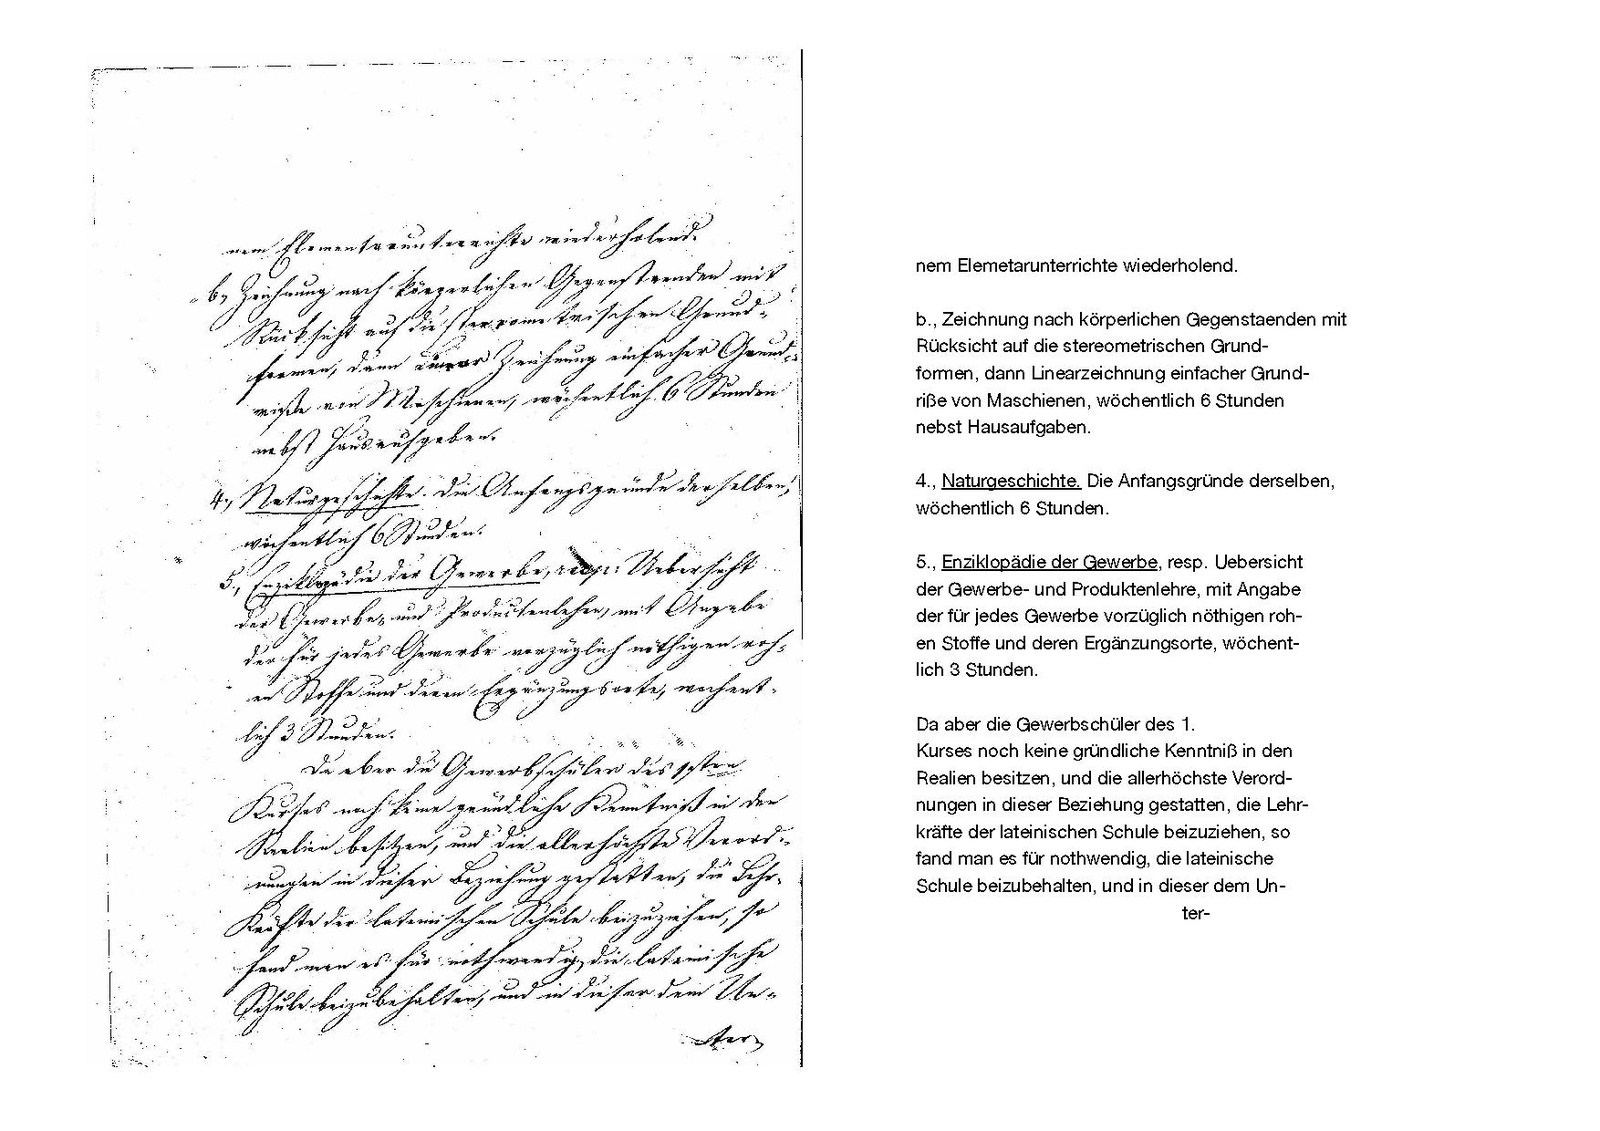 nem Elementarunterrichte wiederholend.
b., Zeichnung nach körperlichen Gegenstaenden mit
Rücksicht auf die stereometrischen Grund-
formen, dann Linear Zeichnung einfacher Grund-
riße von Maschienen, wöchentlich 6 Stunden
nebst Hausaufgaben.
4., Naturgeschichte. Die Anfangsgründe derselben,
wöchentlich 6 Stunden.
5., Enziklopädie der Gewerbe, resp. Uebersicht
der Gewerbe- und Productenlehre, mit Angabe
der für jedes Gewerbe vorzüglich nöthigen roh-
en Stoffe und deren Ergänzungsorte, wöchent-
lich 3 Stunden.
Da aber die Gewerbschüler des 1sten
Kurses noch keine gründliche Kenntniß in den
Realien besitzen, und die allerhöchste Verord-
nungen in dieser Beziehung gestatten, die Lehr-
Kräfte der lateinischen Schule beizuziehen, so
fand man es für nothwendig, die lateinische
Schule beizubehalten, und in dieser dem Un-
ter-
nem Elemetarunterrichte wiederholend.
b., Zeichnung nach körperlichen Gegenstaenden mit
Rücksicht auf die stereometrischen Grund-
formen, dann Linearzeichnung einfacher Grund-
riße von Maschienen, wöchentlich 6 Stunden
nebst Hausaufgaben.
4., Naturgeschichte. Die Anfangsgründe derselben,
wöchentlich 6 Stunden.
5., Enziklopädie der Gewerbe, resp. Uebersicht
der Gewerbe- und Produktenlehre, mit Angabe
der für jedes Gewerbe vorzüglich nöthigen roh-
en Stoffe und deren Ergänzungsorte, wöchent-
lich 3 Stunden.
Da aber die Gewerbschüler des 1.
Kurses noch keine gründliche Kenntniß in den
Realien besitzen, und die allerhöchste Verord-
nungen in dieser Beziehung gestatten, die Lehr-
kräfte der lateinischen Schule beizuziehen, so
fand man es für nothwendig, die lateinische
Schule beizubehalten, und in dieser dem Un-
ter-